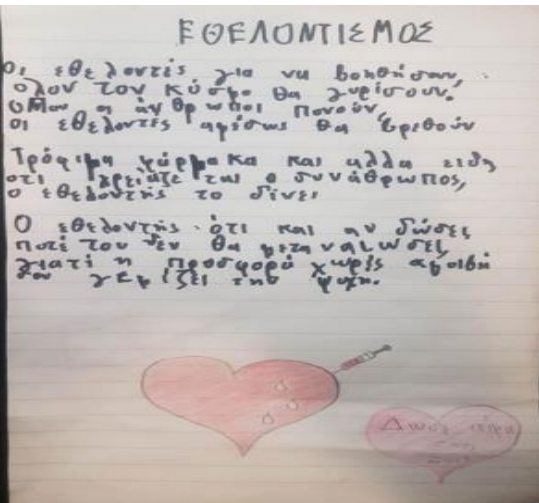 ΕΘΕΛΟΝΤΙΣΜΟΣ
Οι εθελοντές για να βοηθήσουν,
όλον τον κόσμο θα γυρίσουν.
Όπου οι άνθρωποι πονούν,
οι εθελοντές αμέσως θα βρεθούν
Τρόφιμα φάρμακα και αλλα είδη
οτι χρειάζεται ο συνάθρωπος,
ο εθελοντής το δίνει
Ο εθελοντής ότι και αν δώσει
ποτέ του δεν θα μετανιώσει,
γιατί η προσφορά χωρίς αμοιβή
του γεμίζει την ψυχή.
Δώσε αίμα